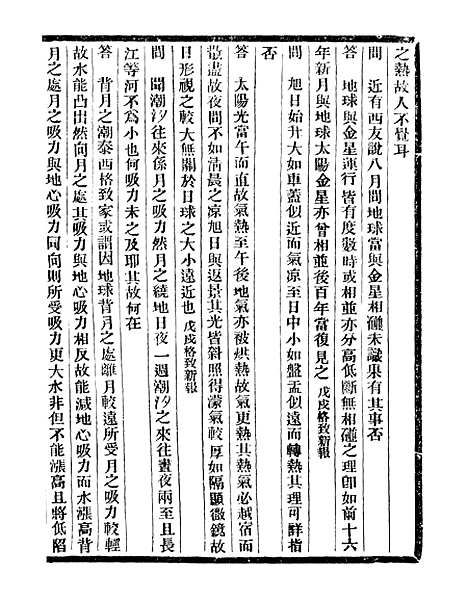 之熱故人不覺耳
問　近有西友說八月間地球當與金星相礶未識果有其事否
答　地球與金星運行皆有度數時或相並亦分高低斷無相礶之理卽如前十六
年新月與地球太陽金星亦曾相並後百年當復見之戊戌格致新報
問　旭日始升大如車蓋似近而氣凉至日中小如盤盂似遠而轉熱其理可詳指
否
答　太陽光當午而直故氣熱至午後地氣亦被烘熱故氣更熱其熱氣必越宿而
散盡故夜間不如淸晨之凉旭日與返景其光皆斜照得濛氣較厚如隔顯微鏡故
日形視之較大無關於日球之大小遠近也戊戌格致新報
問　聞潮汐往來係月之吸力然月之繞地日夜一週潮汐之來往晝夜兩至且長
江等河不爲小也何吸力未之及耶其故何在
答　背月之潮泰西格致家或謂因地球背月之處離月較遠所受月之吸力較輕
故水能凸出然向月之處其吸力與地心吸力相反故能減地心吸力而水漲高背
月之處月之吸力與地心吸力同向則所受吸力更大水非但不能漲高且將低陷